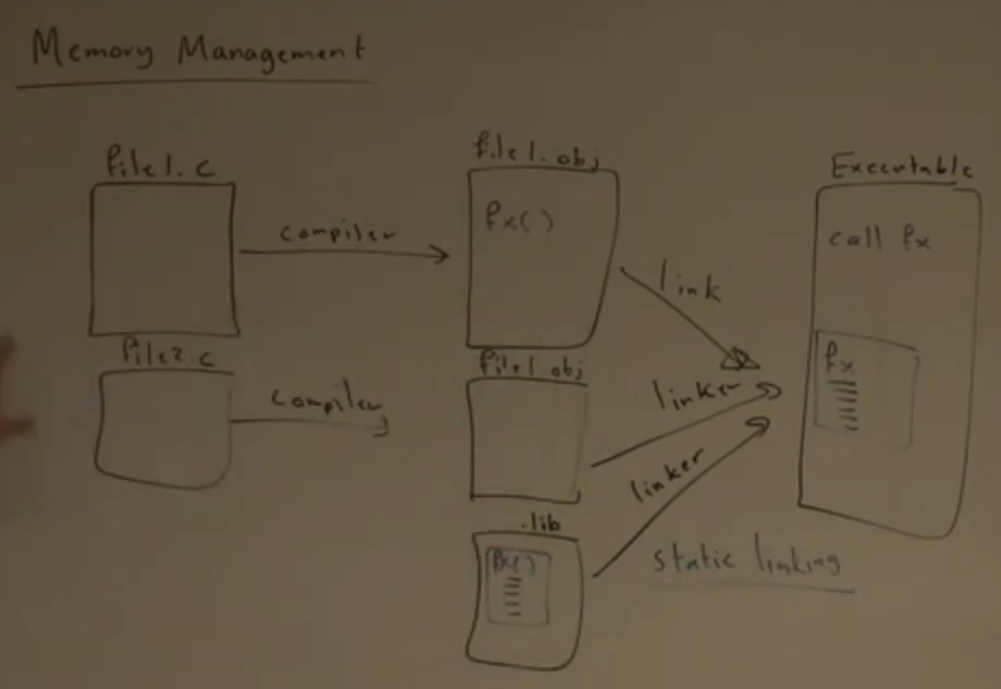 Memory Management
file1.c
compiler
file1.obj
fx()
link
Executable
call fx
fx
file2.c
compiler
file1.obj
linker
.lib
fx()
linker
static linking